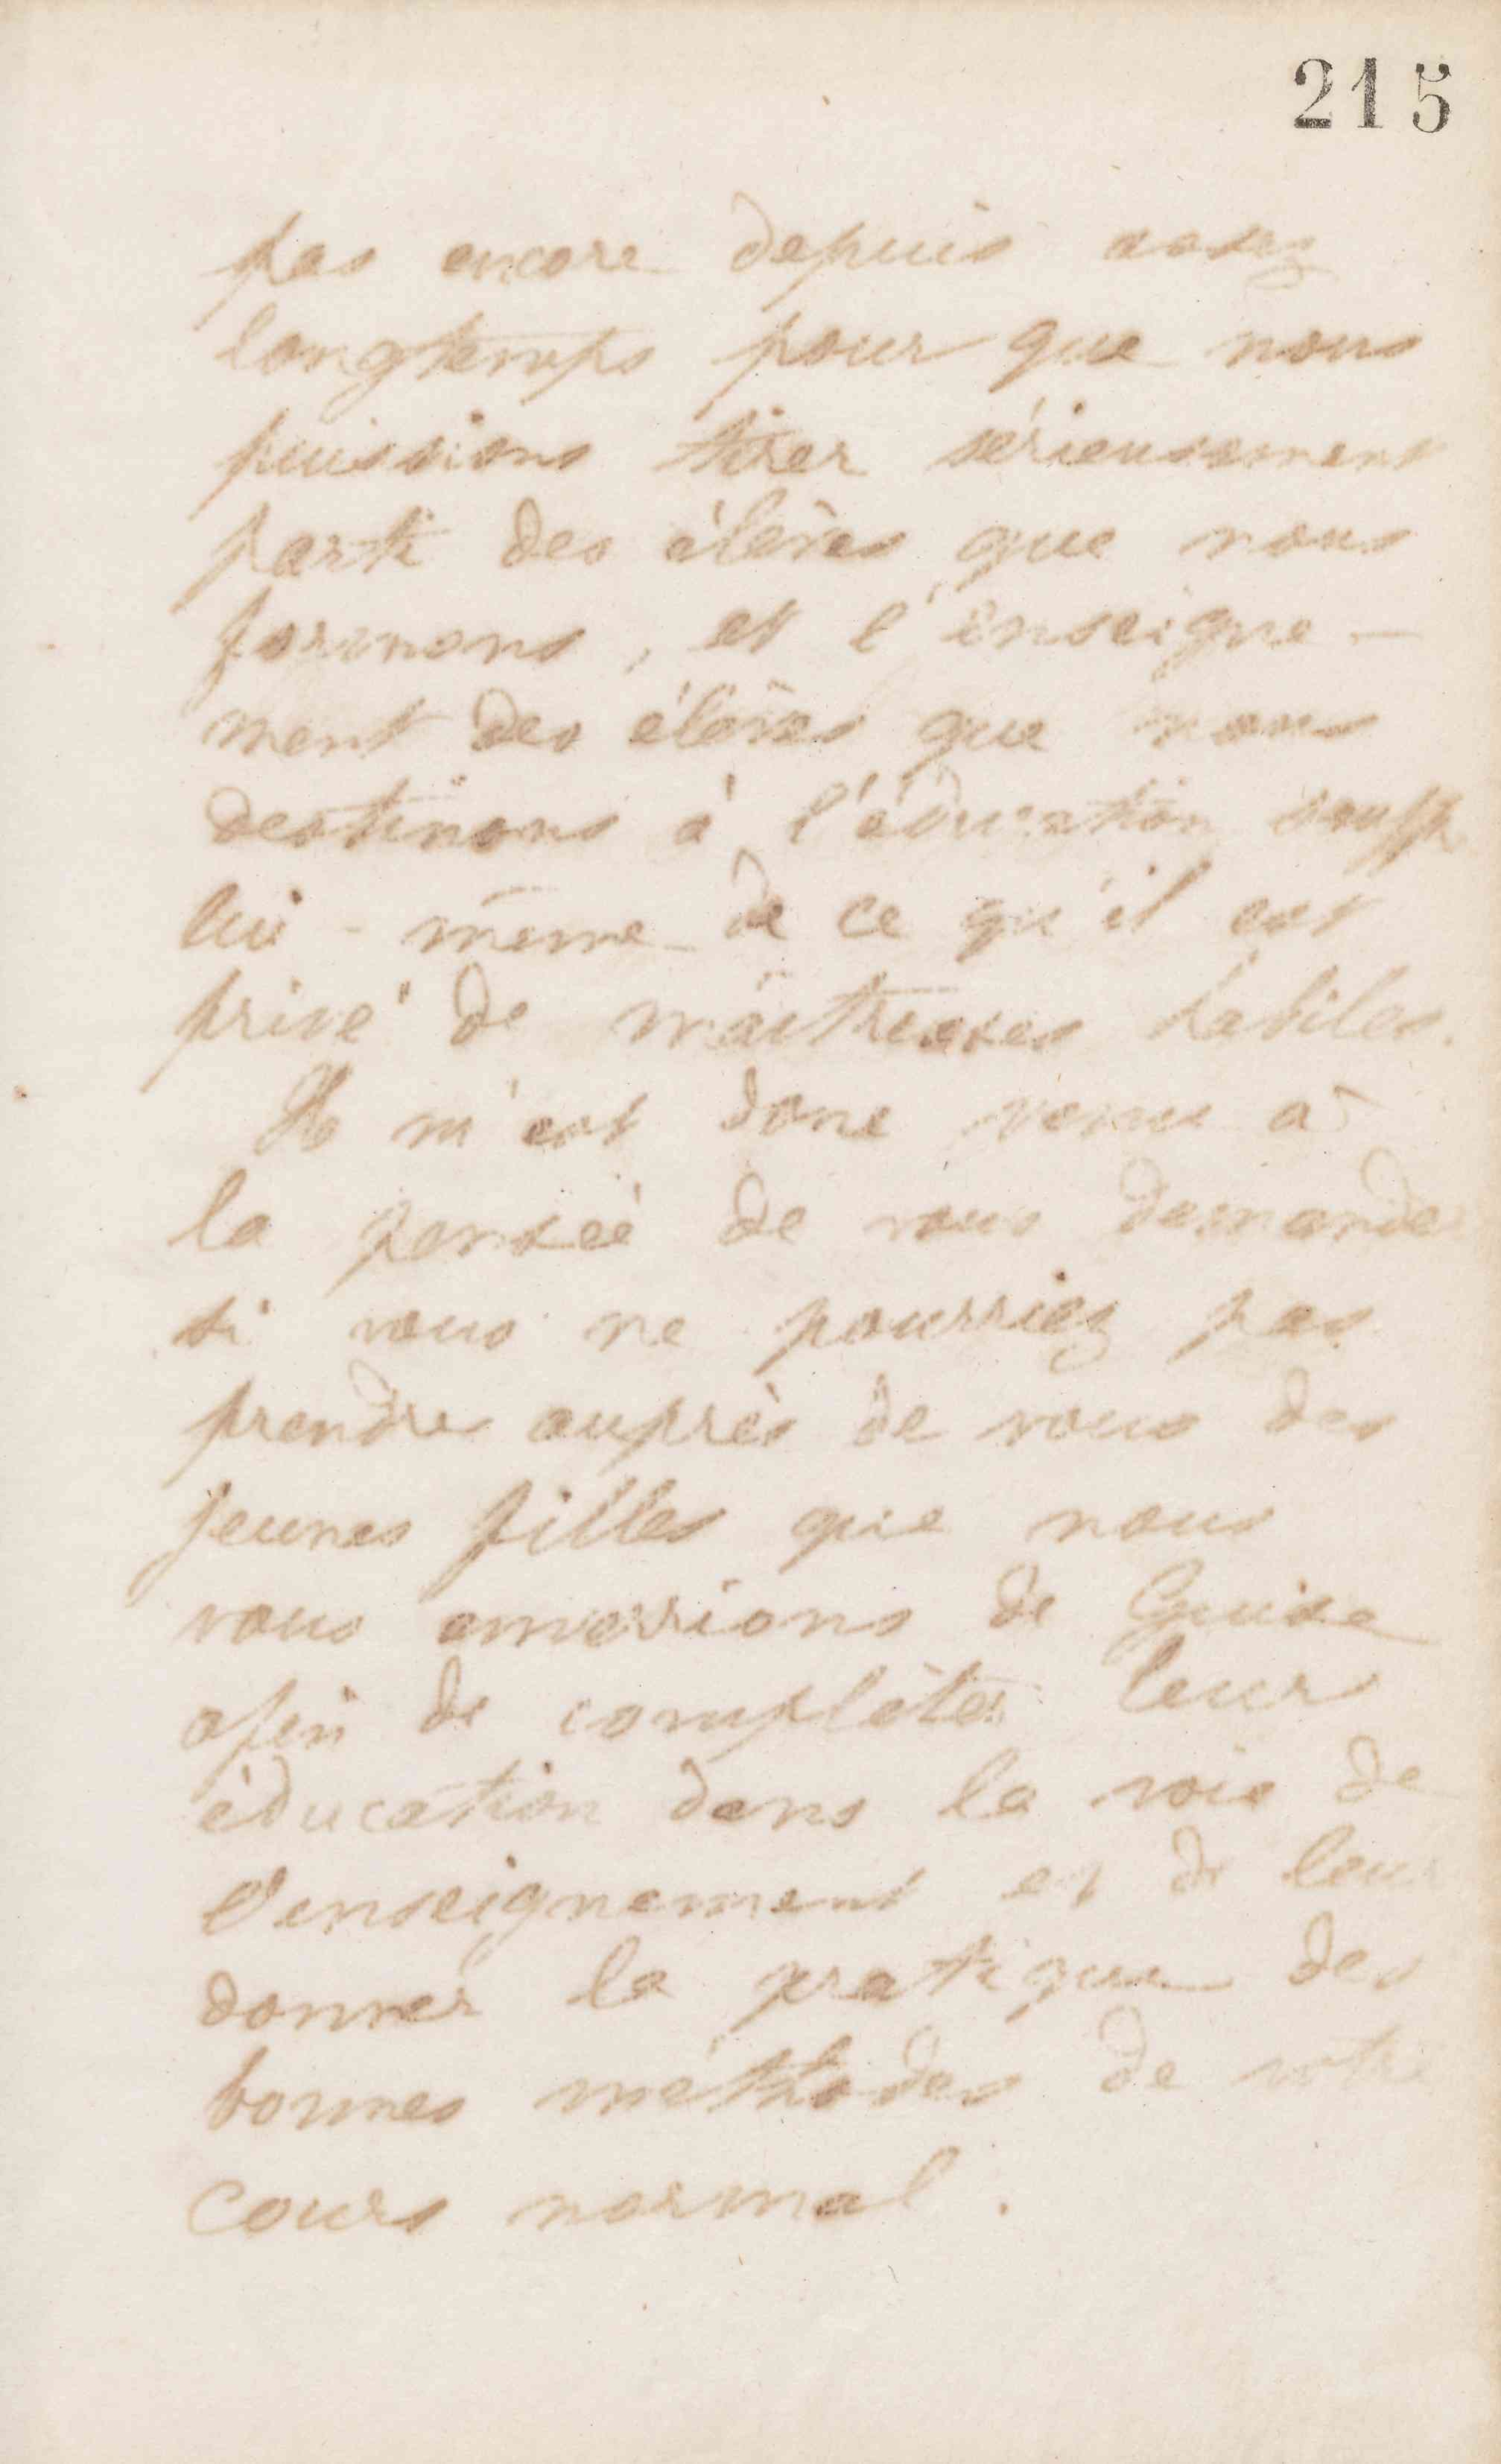 215
pas encore depuis assez
longtemps pour que nous
puissions tirer sérieusement
parti des élèves que nous
formons, et l'enseigne-
ment des élèves que nous
destinons à l'éducation souff
lui-même de ce qu'il est
privé de maîtresses habiles.
Il m'est donc venu à
la pensée de vous demander
si vous ne pourriez pas
prendre auprès de vous des
jeunes filles que nous
vous enverrions de Guise
afin de compléter leur
éducation dans la voie de
l'enseignement et de leur
donner la pratique des
bonnes méthodes de votre
cours normal.